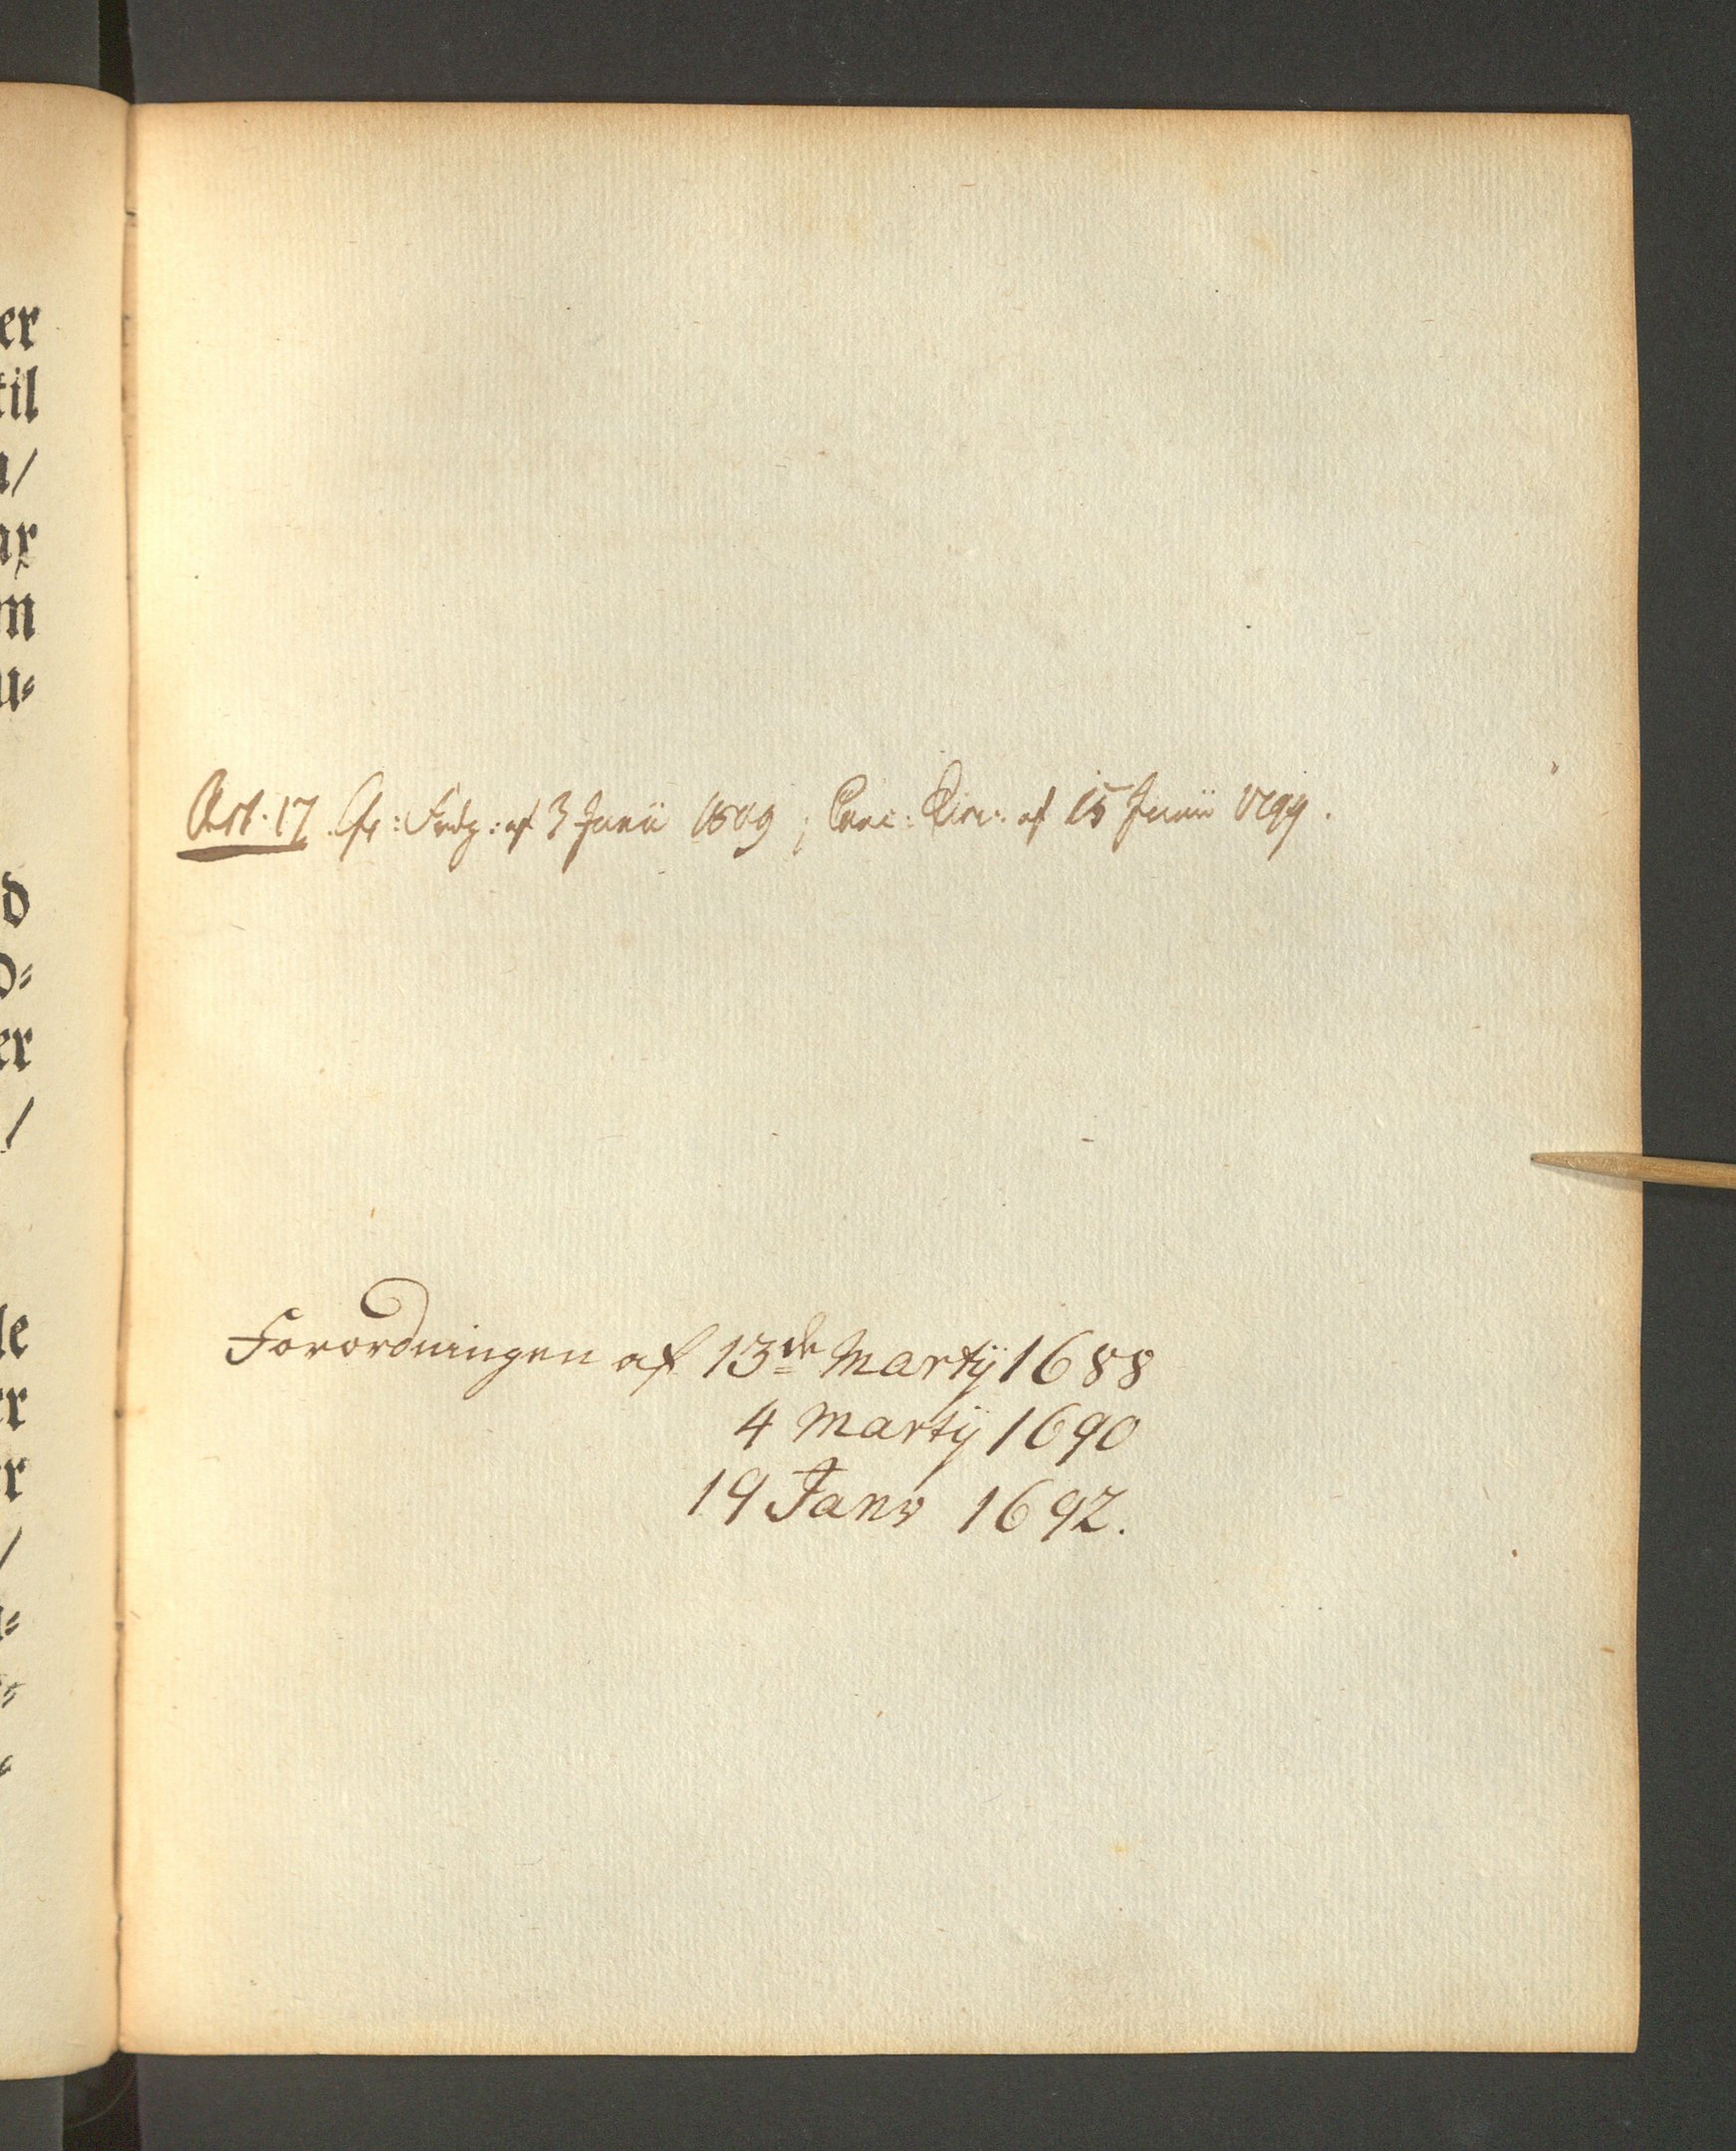 er
til
n/
ar
m
u-
d
d-
er
/
le
er
r
/
Art. 17. Cfr: Frdg: af 3 Junii 1809; Canc: Circ: af 15 Junii 1799.
Forordningen af 13de Martij 1688
4 Martij 1690
19 Janv 1692.